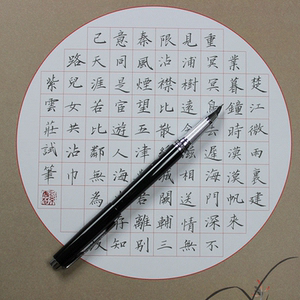 楚江微雨裏建
業暮鐘時漠漠帆來
重冥冥鳥去遲海門深不
見浦樹遠含滋相送情無
限沾襟比散城闕輔三
秦風煙望五津離別
意同是宦遊人海存知
己天涯若比鄰無為歧
路兒女共沾巾
紫雲莊試筆